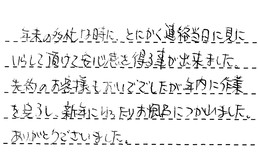 年末の多忙な時に、とにかく連絡当日に見に
いらして頂けて安心感を得る事が出来ました。
先約のお客様もおいででしたが年内に作業
を完了し、新年にゆったりお風呂につかいました。
ありがとうございました。